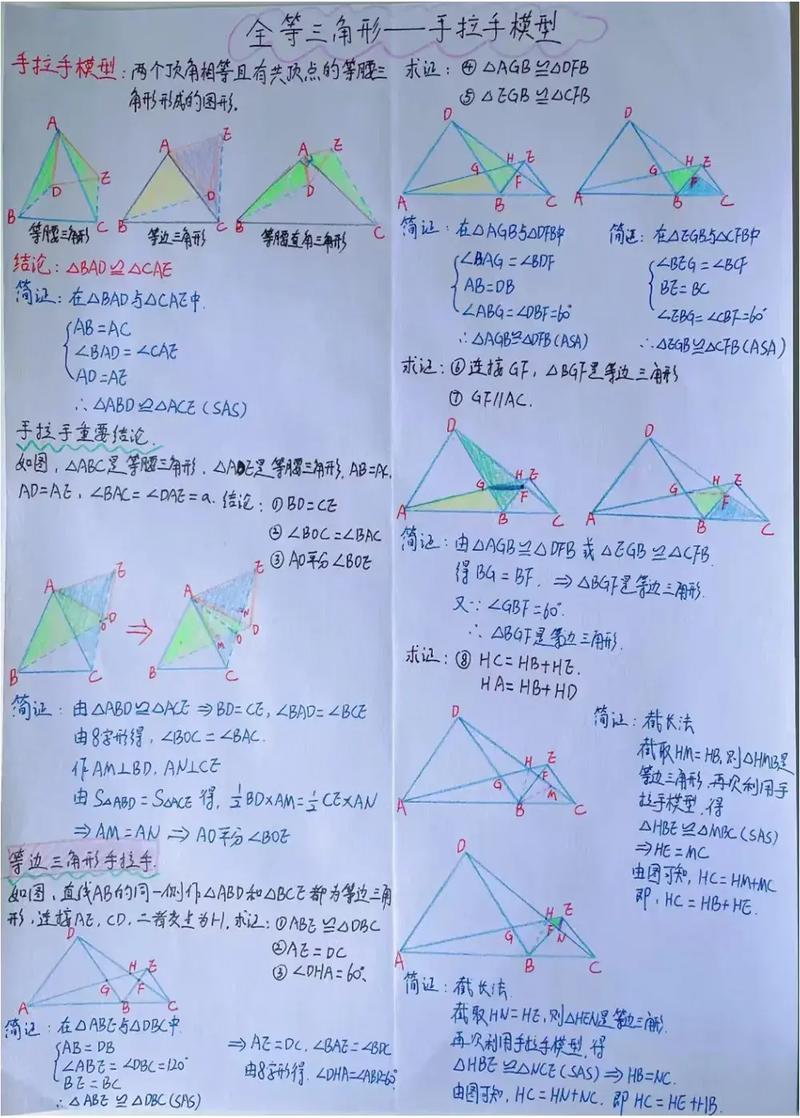 全等三角形——手拉手模型
手拉手模型：两个顶角相等且有共顶点的等腰三
角形形成的图形.
A
D
E
B
C
等腰三角形
A
E
D
B
C
等边三角形
A
E
D
B
C
等腰直角三角形
结论：△BAD≌△CAE
简证：在△BAD与△CAE中.
AB=AC
∠BAD=∠CAE
AD=AE
∴△ABD≌△ACE(SAS)
手拉手重要结论.
如图，△ABC是等腰三角形，△ADE是等腰三角形. AB=AC,
AD=AE, ∠BAC=∠DAE=a. 结论：①BD=CE
②∠BOC=∠BAC
③AO平分∠BOE
A
E
O
D
B
C
⇒
A
E
N
O
D
M
B
C
简证：由△ABD≌△ACE⇒BD=CE, ∠BAD=∠BCE
由8字形得，∠BOC=∠BAC.
作AM⊥BD, AN⊥CE
由S△ABD=S△ACE得, ½BD×AM=½CE×AN
⇒AM=AN⇒AO平分∠BOE
等边三角形手拉手.
如图，直线AB的同一侧作△ABD和△BCE都为等边三角
形，连接AE, CD, 二者交点为H. 求证：①ABE≌△DBC
②AE=DC
③∠DHA=60°.
D
H
E
G
F
A
B
C
简证：在△ABE与△DBC中.
AB=DB
∠ABE=∠DBC=120°
BE=BC
∴△ABE≌△DBC(SAS)
⇒AE=DC. ∠BAE=∠BDC
由8字形得. ∠DHA=∠ABD=60°
求证：④△AGB≌△DFB
⑤△EGB≌△CFB
D
H
E
G
F
A
B
C
D
H
E
G
F
A
B
C
简证：在△AGB与△DFB中
∠BAG=∠BDF
AB=DB
∠ABG=∠DBF=60°
∴△AGB≌△DFB(ASA)
简证：在△EGB与△CFB中
∠BEG=∠BCF
BE=BC
∠EBG=∠CBF=60°
∴△EGB≌△CFB(ASA)
求证：⑥连接GF，△BGF是等边三角形
⑦GF//AC.
D
H
E
G
F
A
B
C
D
H
E
G
F
A
B
C
简证：由△AGB≌△DFB或△EGB≌△CFB.
得BG=BF. ⇒△BGF是等边三角形.
又∵∠GBF=60°.
∴△BGF是等边三角形.
求证：⑧HC=HB+HE.
HA=HB+HD
D
H
E
G
F
M
A
B
C
简证：截长法
截取HM=HB,则△HMB是
等边三角形，再次利用手
拉手模型，得
△HBE≌△MBC(SAS)
⇒HE=MC
由图可知，HC=HM+MC
即，HC=HB+HE.
D
H
E
G
F
N
A
B
C
简证：截长法.
截取HN=HE,则△HEN是等边三角形.
再次利用手拉手模型，得
△HBE≌△NCE(SAS)⇒HB=NC.
由图可知，HC=HN+NC. 即HC=HE+HB.